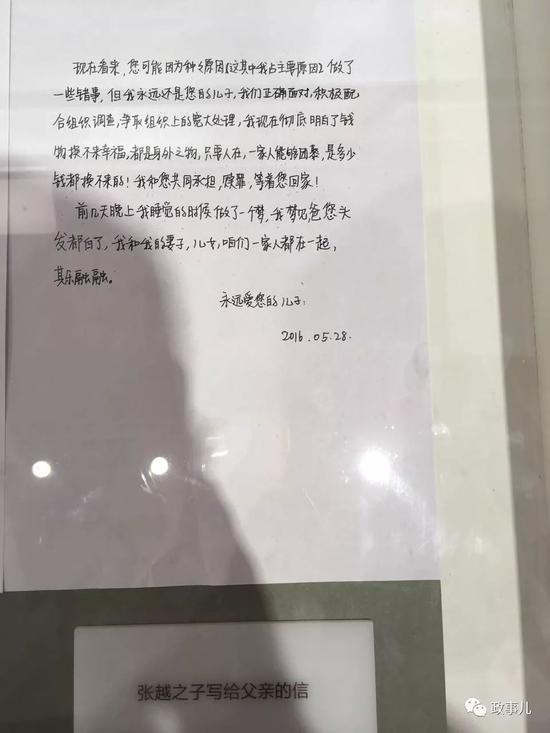 现在看来，您可能因为种种原因【这其中我占主要原因】做了
一些错事，但我永远还是您的儿子，我们正确面对，积极配
合组织调查，争取组织上的宽大处理，我现在彻底明白了钱
物换不来幸福，都是身外之物，只要人在，一家人能够团聚，是多少
钱都换不来的！我和您共同承担，赎罪，等着您回家！
前几天晚上我睡觉的时候做了一个梦，我梦见爸您头
发都白了，我和我的妻子，儿女，咱们一家人都在一起，
其乐融融。
永远爱您的儿子：
2016.05.28.
张越之子写给父亲的信
政事儿